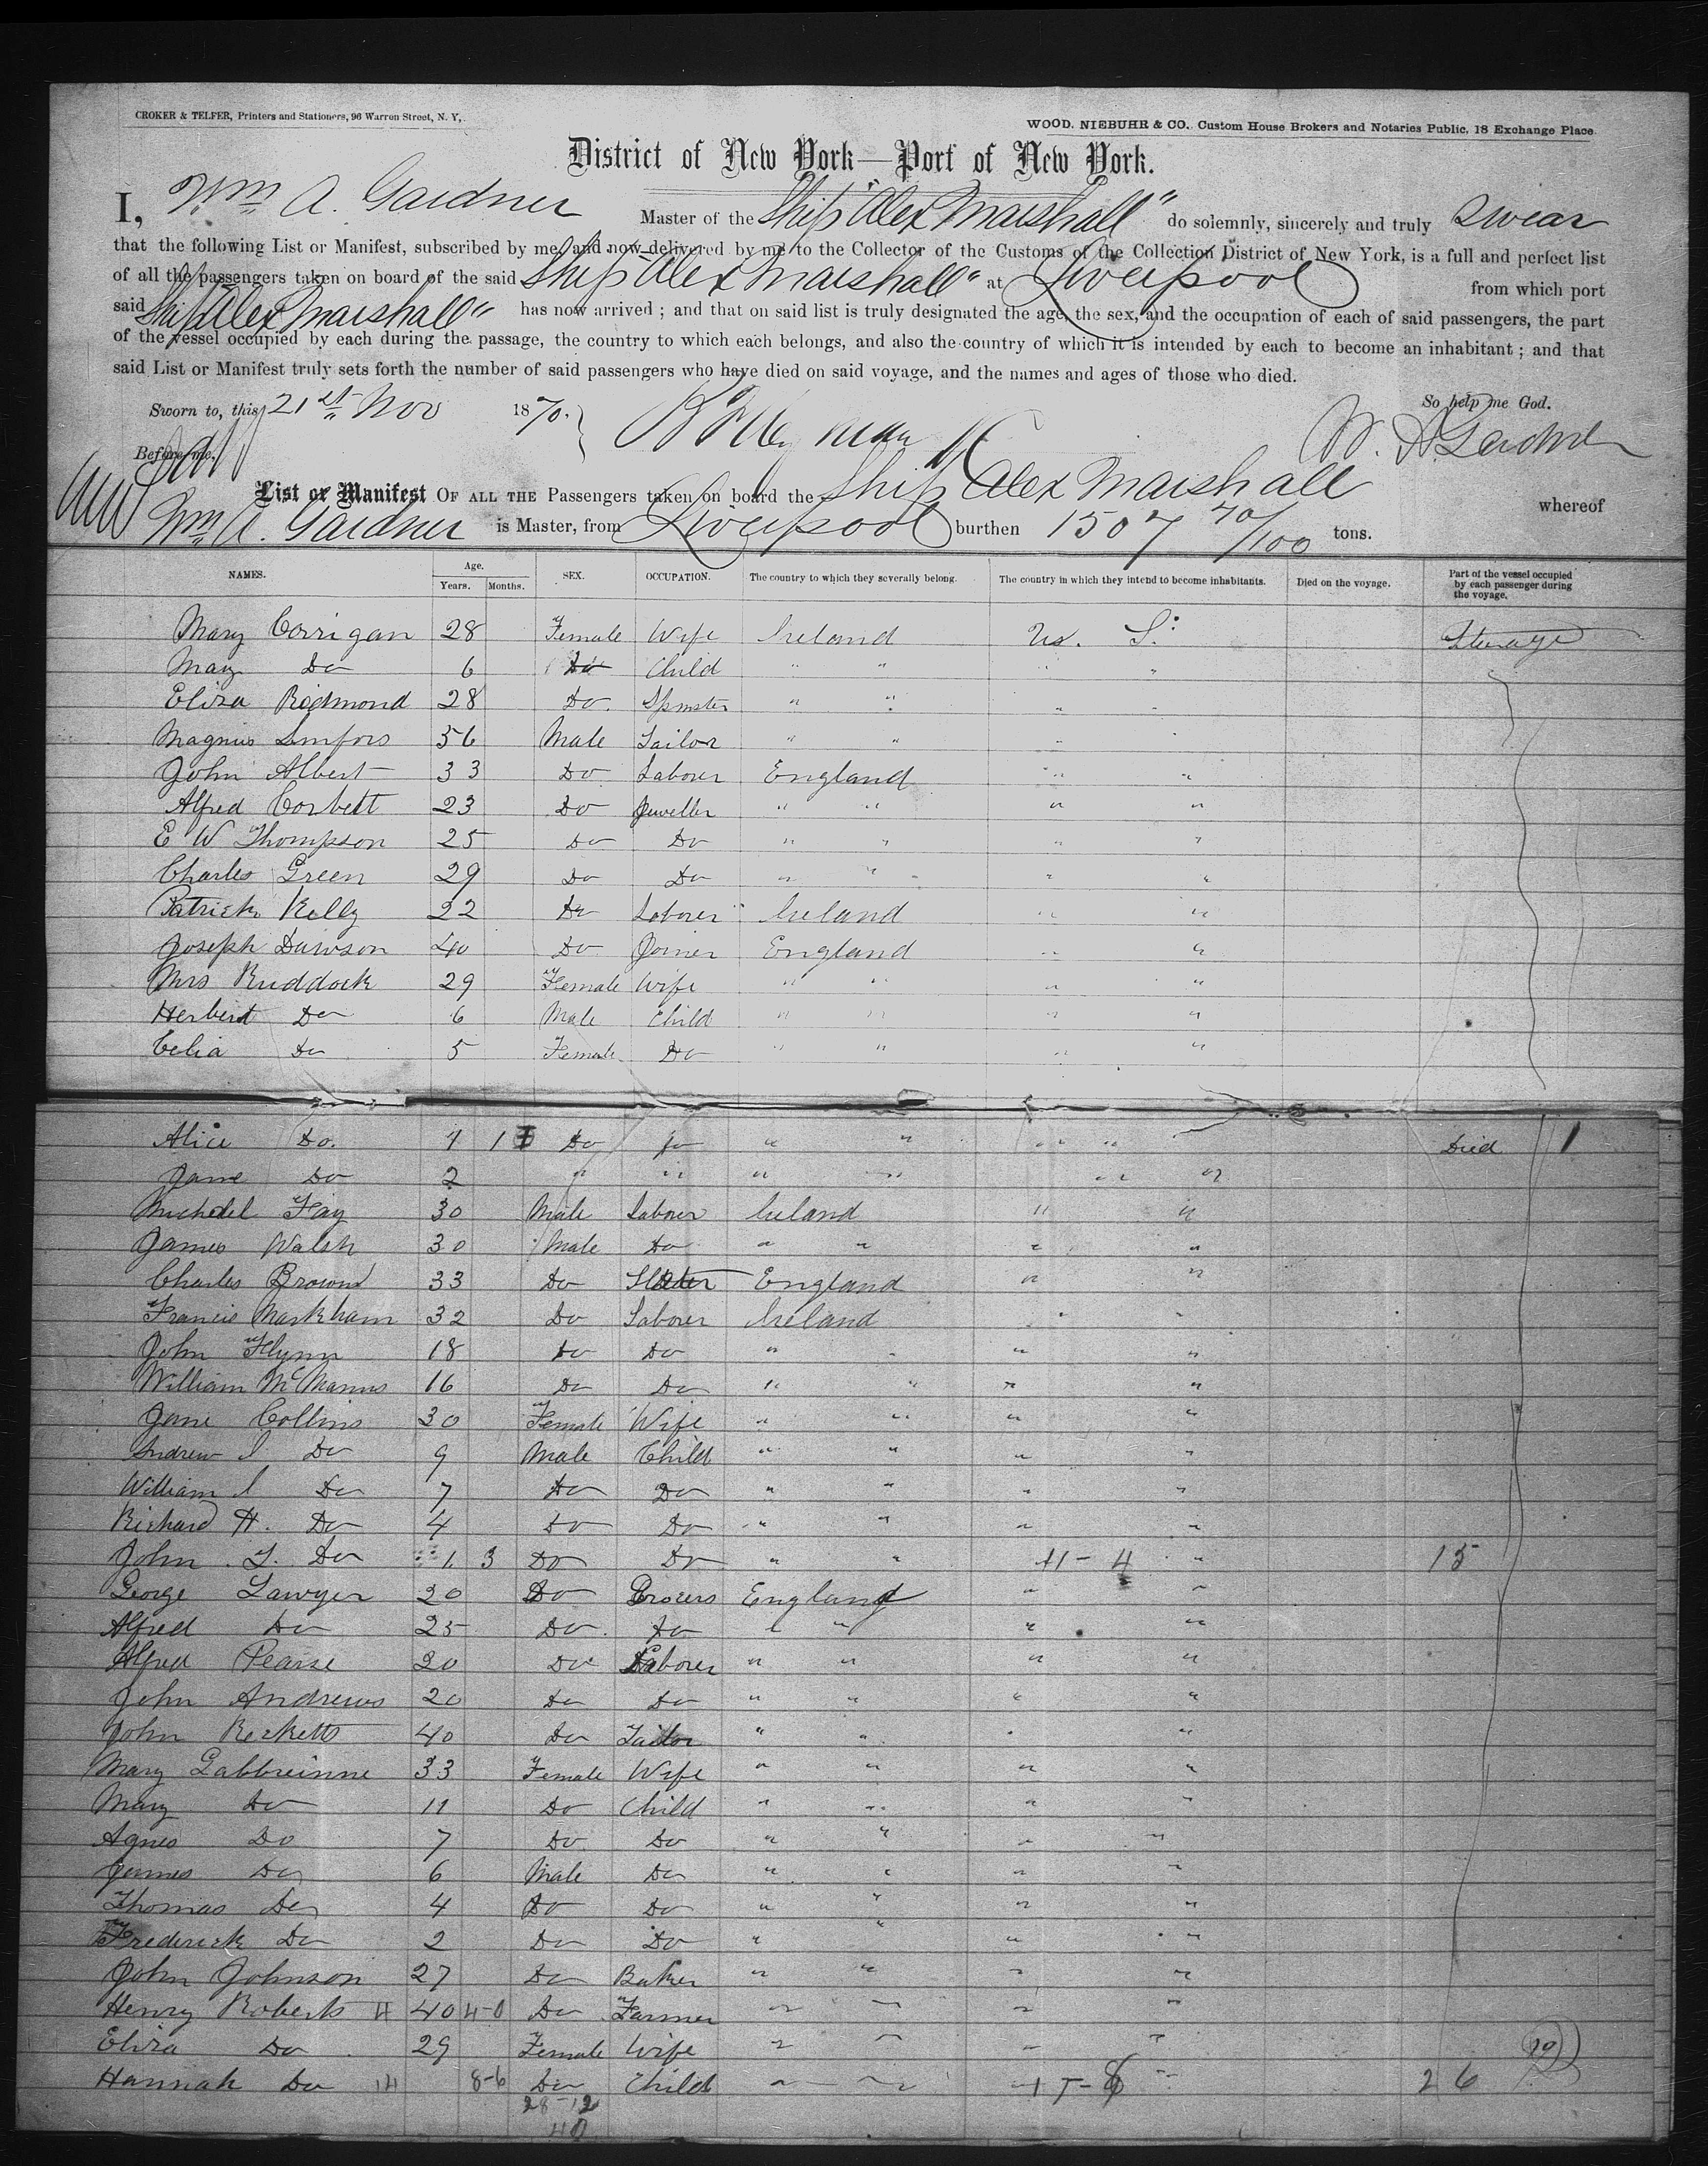 CROKER & TELFER, Printers and Stationers, 96 Warren Street, N. Y.
WOOD, NIEBUHR & CO., Custom House Brokers and Notaries Public, 18 Exchange Place.
District of New York—Port of New York.
I, Wm A. Gardner Master of the Ship "Alex Marshall" do solemnly, sincerely and truly swear
that the following List or Manifest, subscribed by me, and now delivered by me to the Collector of the Customs of the Collection District of New York, is a full and perfect list
of all the passengers taken on board of the said Ship "Alex Marshall" at Liverpool from which port
said Ship "Alex Marshall" has now arrived ; and that on said list is truly designated the age, the sex, and the occupation of each of said passengers, the part
of the vessel occupied by each during the passage, the country to which each belongs, and also the country of which it is intended by each to become an inhabitant ; and that
said List or Manifest truly sets forth the number of said passengers who have died on said voyage, and the names and ages of those who died.
Sworn to, this 21st Nov 1870. So help me God.
Before me, W. A. Gardner
List or Manifest OF ALL THE Passengers taken on board the Ship Alex Marshall whereof
Wm A. Gardner is Master, from Liverpool burthen 1507 70/100 tons.
NAMES. Age. Years. Months. SEX. OCCUPATION. The country to which they severally belong. The country in which they intend to become inhabitants. Died on the voyage. Part of the vessel occupied by each passenger during the voyage.
Mary Corrigan 28 Female Wife Ireland U.S. Steerage
Mary Do 6 Do Child " " "
Eliza Redmond 28 Do. Spinster " " " "
Magnus 56 Male Tailor " " " "
John Albert 33 Do Laborer England " "
Alfred Corbett 23 Do Jeweller " " " "
E W Thompson 25 Do Do " " " "
Charles Green 29 Do Do " " " "
Patrick Kelly 22 Do Laborer Ireland " "
Joseph Dawson 40 Do Joiner England " "
Mrs Ruddock 29 Female Wife " " " "
Herbert Do 6 Male Child " " " "
Celia Do 5 Female Do " " " "
Alice Do. 1 Do Do " " " " Died 1
Jane Do 2 " " " " " "
Michael Fay 30 Male Laborer Ireland " "
James Walsh 30 Male Do " " " "
Charles Brown 33 Do Slater England " "
Francis Markham 32 Do Laborer Ireland " "
John Flynn 18 Do Do " " " "
William McManus 16 Do Do " " " "
Jane Collins 30 Female Wife " " " "
Andrew J Do 9 Male Child " " " "
William J Do 7 Do Do " " " "
Richard H. Do 4 Do Do " " " "
John T. Do 1 3 Do Do " " 11-4 " 15
George Sawyer 20 Do Grocers England " "
Alfred Do 25 Do Do " " " "
Alfred Pearse 20 Do Laborer " " " "
John Andrews 20 Do Do " " " "
John Reckett 40 Do Tailor " " " "
Mary Gabbreinne 33 Female Wife " " " "
Mary Do 11 Do Child " " " "
Agnes Do 7 Do Do " " " "
James Do 6 Male Do " " " "
Thomas Do 4 Do Do " " " "
Frederick Do 2 Do Do " " " "
John Johnson 27 Do Baker " " " "
Henry Roberts 40 Do Farmer " " " "
Eliza Do 29 Female Wife " " " "
Hannah Do 8-6 Do Child " " " 26
28-12
40